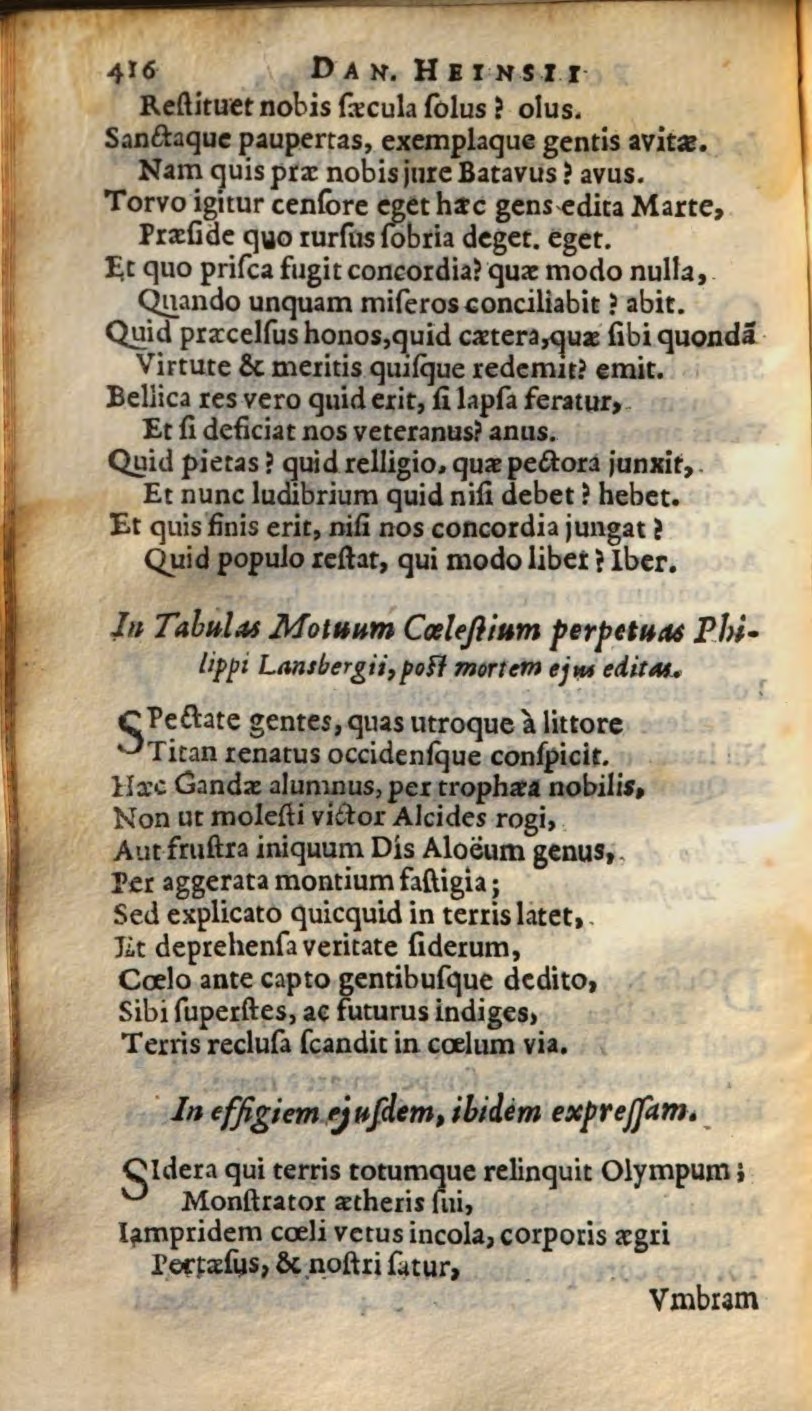 416 DAN. HEINSII
Reſtituet nobis ſæcula ſolus ? olus.
Sanctaque paupertas, exemplaque gentis avitæ.
Nam quis præ nobis jure Batavus ? avus.
Torvo igitur cenſore eget hæc gens edita Marte,
Præſide quo rurſus ſobria deget. eget.
Et quo priſca fugit concordia? quæ modo nulla,
Quando unquam miſeros conciliabit ? abit.
Quid præcelſus honos,quid cætera,quæ ſibi quondã
Virtute & meritis quiſque redemit? emit.
Bellica res vero quid erit, ſi lapſa feratur,
Et ſi deficiat nos veteranus? anus.
Quid pietas ? quid relligio, quæ pectora junxit,
Et nunc ludibrium quid niſi debet ? hebet.
Et quis finis erit, niſi nos concordia jungat ?
Quid populo reſtat, qui modo liber ? Iber.
In Tabulas Motuum Cœleſtium perpetuas Phi-
lippi Lansbergii, poſt mortem ejus editas.
SPectate gentes, quas utroque à littore
Titan renatus occidenſque conſpicit.
Hæc Gandæ alumnus, per trophæa nobilis,
Non ut moleſti victor Alcides rogi,
Aut fruſtra iniquum Dis Aloëum genus,
Per aggerata montium faſtigia;
Sed explicato quicquid in terris latet,
Et deprehenſa veritate ſiderum,
Cœlo ante capto gentibuſque dedito,
Sibi ſuperſtes, ac futurus indiges,
Terris recluſa ſcandit in cœlum via.
In effigiem ejuſdem, ibidem expreſſam.
SIdera qui terris totumque relinquit Olympum;
Monſtrator ætheris ſui,
Iampridem cœli vetus incola, corporis ægri
Pertæſus, & noſtri ſatur,
Vmbram